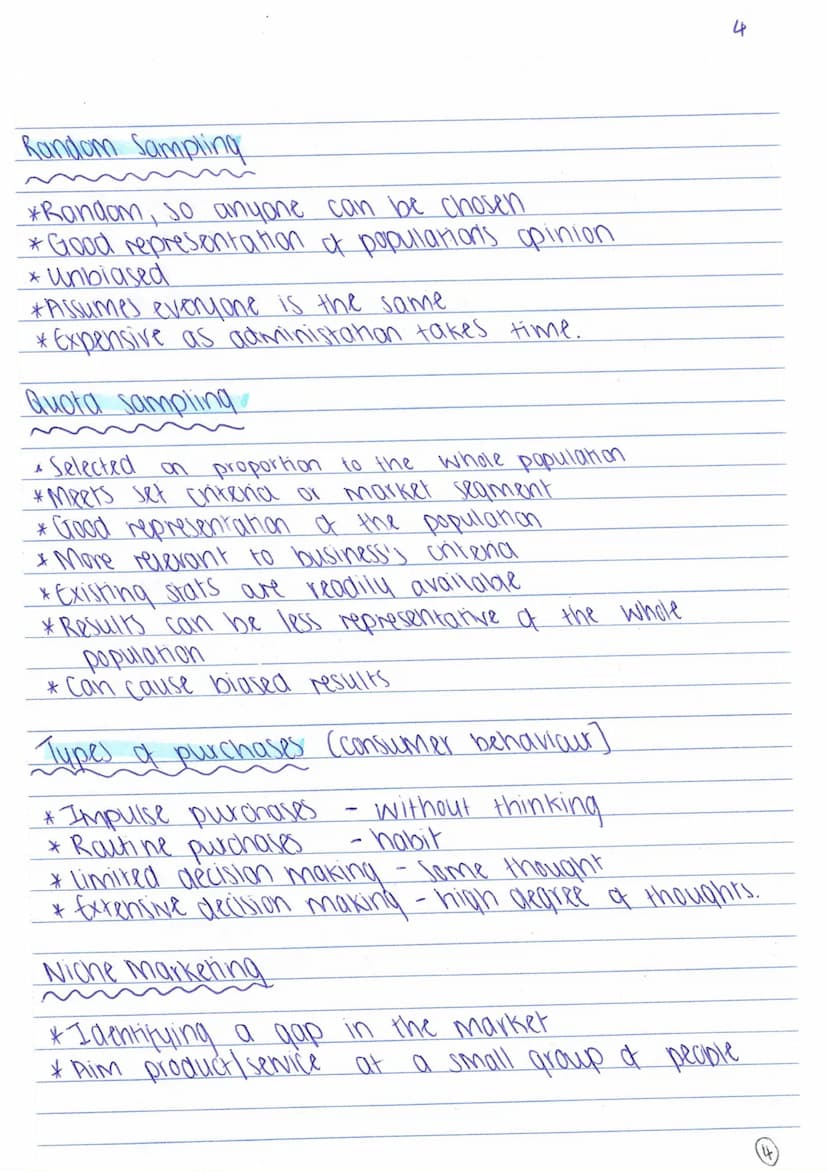 4
Random Sampling
*Random, so anyone can be chosen
*Good representation of population's opinion
*Unbiased
*Assumes everyone is the same
*Expensive as administation takes time.
Quota sampling
*Selected on proportion to the whole population
*Meets set criteria or market segment
*Good representation of the population
*More relevant to business's criteria
*Existing stats are readily available
*Results can be less representative of the whole
population
*Can cause biased results
Types of purchases (consumer behaviour]
*Impulse purchases - without thinking
*Routine purchases - habit
*Limited decision making - some thought
*Extensive decision making - high degree of thoughts.
Niche Marketing
*Identifying a gap in the market
*Aim product/service at a small group of people
4